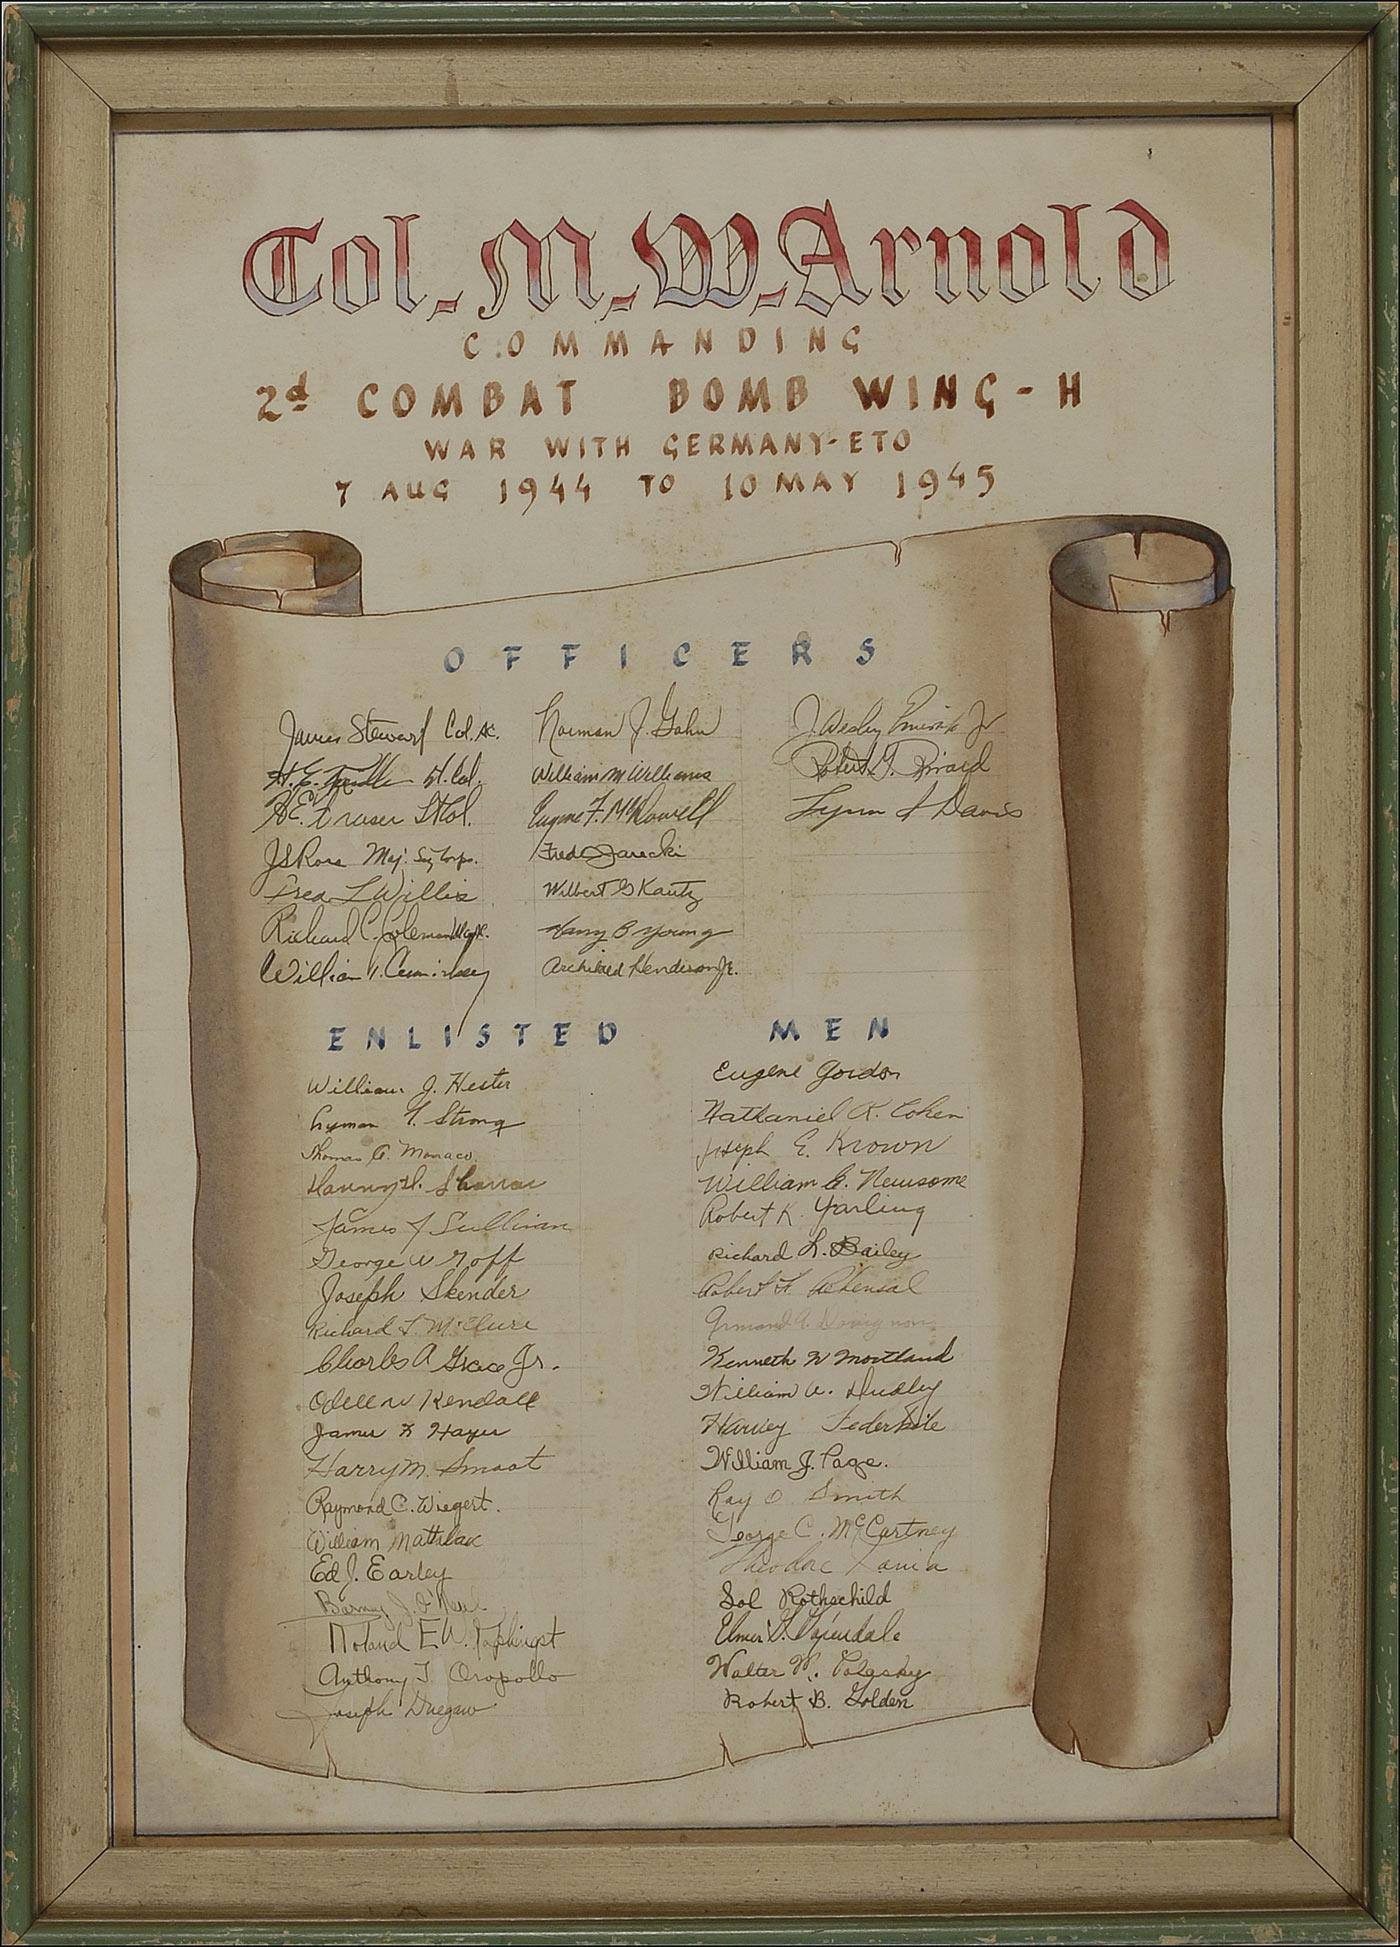 Col. M. W. Arnold
COMMANDING
2d COMBAT BOMB WING - H
WAR WITH GERMANY - ETO
7 AUG 1944 TO 10 MAY 1945
OFFICERS
James Stewart Col. AC.
H. E. Lt. Col.
Lt Col.
JS Ross Maj. Sig Corps.
Fred L Willis
Richard C. Coleman
William
Norman J. Gahn
William M Williams
Eugene F. McDowell
Fred Jarecki
Wilbert G Kautz
Harry B Young
Archibald Henderson Jr.
J. Wesley Jr
Robert
Lynn S Davis
ENLISTED MEN
William J. Hester
Lyman T. Strong
Thomas A. Monaco.
James J Sullivan
George W Goff
Joseph Skender
Richard L McClure
Charles A Grace Jr.
Odell W Kendall
James F Hayes
Harry M. Smoot
Raymond C. Wiegert.
William
Ed J. Earley
Barney J. O'Neil
E.W.
Anthony T Oropollo
Joseph
Eugene Gordon
Nathaniel R. Cohen
Joseph E. Krown
William G. Newsome
Robert K. Yarling
Richard L. Bailey
Robert F.
Armand A.
Kenneth W Mortland
William A. Dudley
Harvey
William J. Page.
Ray O Smith
George C. McCartney
Theodore
Sol Rothschild
Elmer
Walter W.
Robert B. Golden